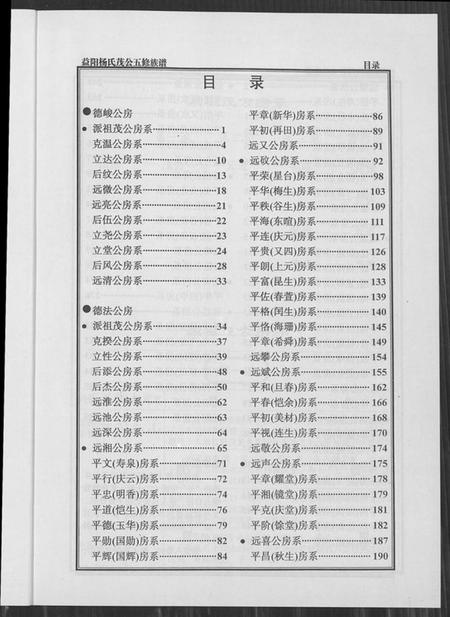 益阳杨氏茂公五修族谱
目录
目 录
●德峻公房
● 派祖茂公房系 1
克温公房系 4
立达公房系 10
后纹公房系 13
远微公房系 18
远亮公房系 21
后伍公房系 22
立尧公房系 23
立堂公房系 24
后风公房系 28
远清公房系 33
●德法公房
● 派祖茂公房系 34
克揆公房系 37
立性公房系 39
后添公房系 48
后杰公房系 50
远淮公房系 62
远池公房系 63
远深公房系 64
● 远湘公房系 65
平文(寿泉)房系 71
平行(庆云)房系 72
平忠(明香)房系 74
平道(恺生)房系 76
平德(玉华)房系 79
平勋(国勋)房系 82
平辉(国辉)房系 84
平章(新华)房系 86
平初(再田)房系 89
远又公房系 91
● 远砇公房系 92
平荣(星台)房系 98
平华(梅生)房系 103
平秩(谷生)房系 109
平海(东暄)房系 111
平连(庆元)房系 117
平贵(又四)房系 126
平朗(上元)房系 128
平富(昆生)房系 133
平佐(春萱)房系 139
平格(闰生)房系 140
平恪(海珊)房系 145
平章(希舜)房系 149
远攀公房系 154
● 远斌公房系 155
平和(旦春)房系 162
平春(恺余)房系 166
平初(美材)房系 168
平视(连生)房系 170
远敬公房系 174
● 远声公房系 175
平章(耀堂)房系 178
平湘(镜堂)房系 179
平克(庆堂)房系 181
平阶(馀堂)房系 182
● 远喜公房系 187
平昌(秋生)房系 190